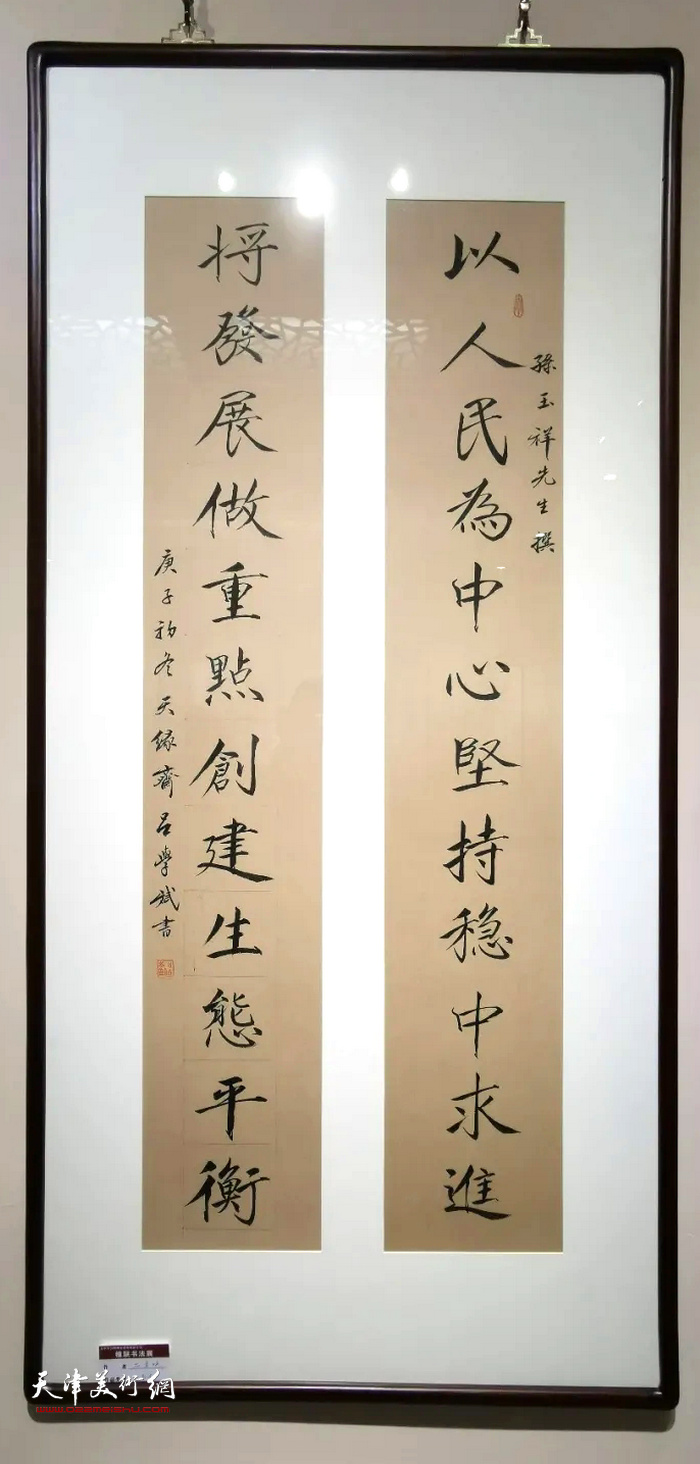 以人民為中心堅持稳中求進
孫玉祥先生撰
将發展做重點創建生態平衡
庚子初冬天緣齋吕學斌書
楹联书法展
天津美術網